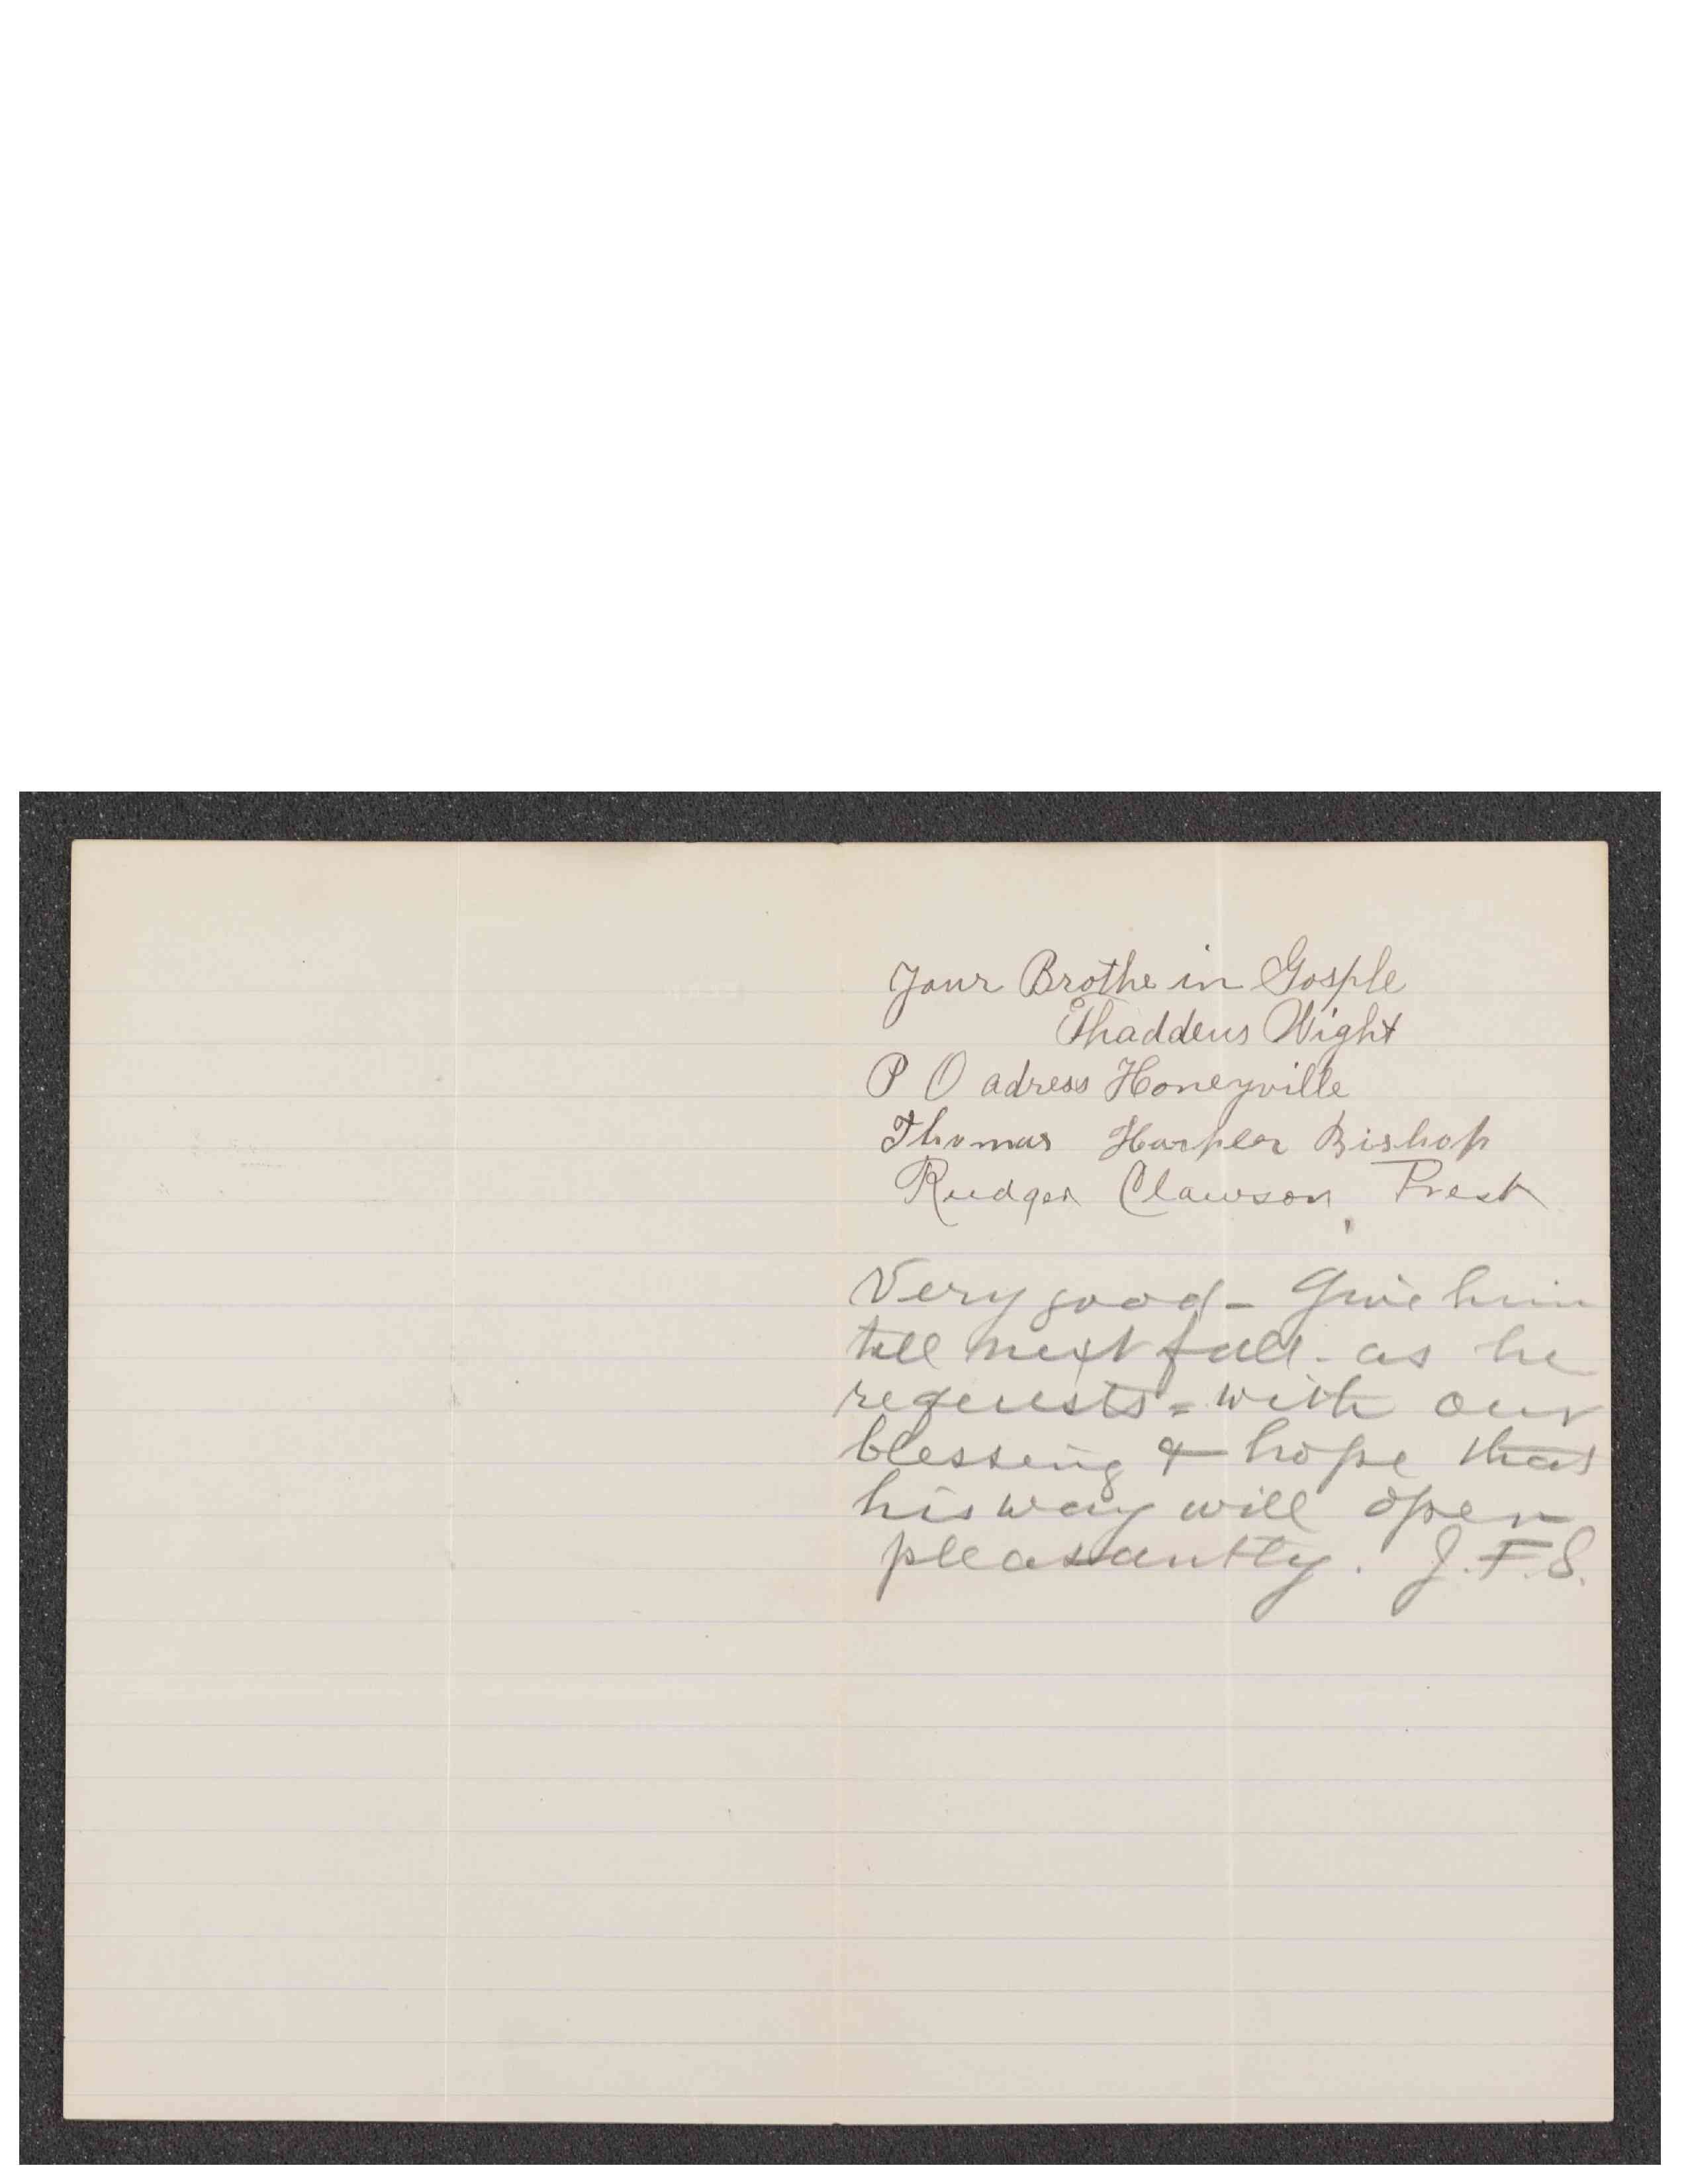 Your Brothe in Gosple
Thaddeus Wight
P O adress Honeyville
Thomas Harper Bishop
Rudger Clawson, Prest
Very good – Give him
till next fall – as he
requests = with our
blessing & hope that
his way will open
pleasantly. J.F.S.